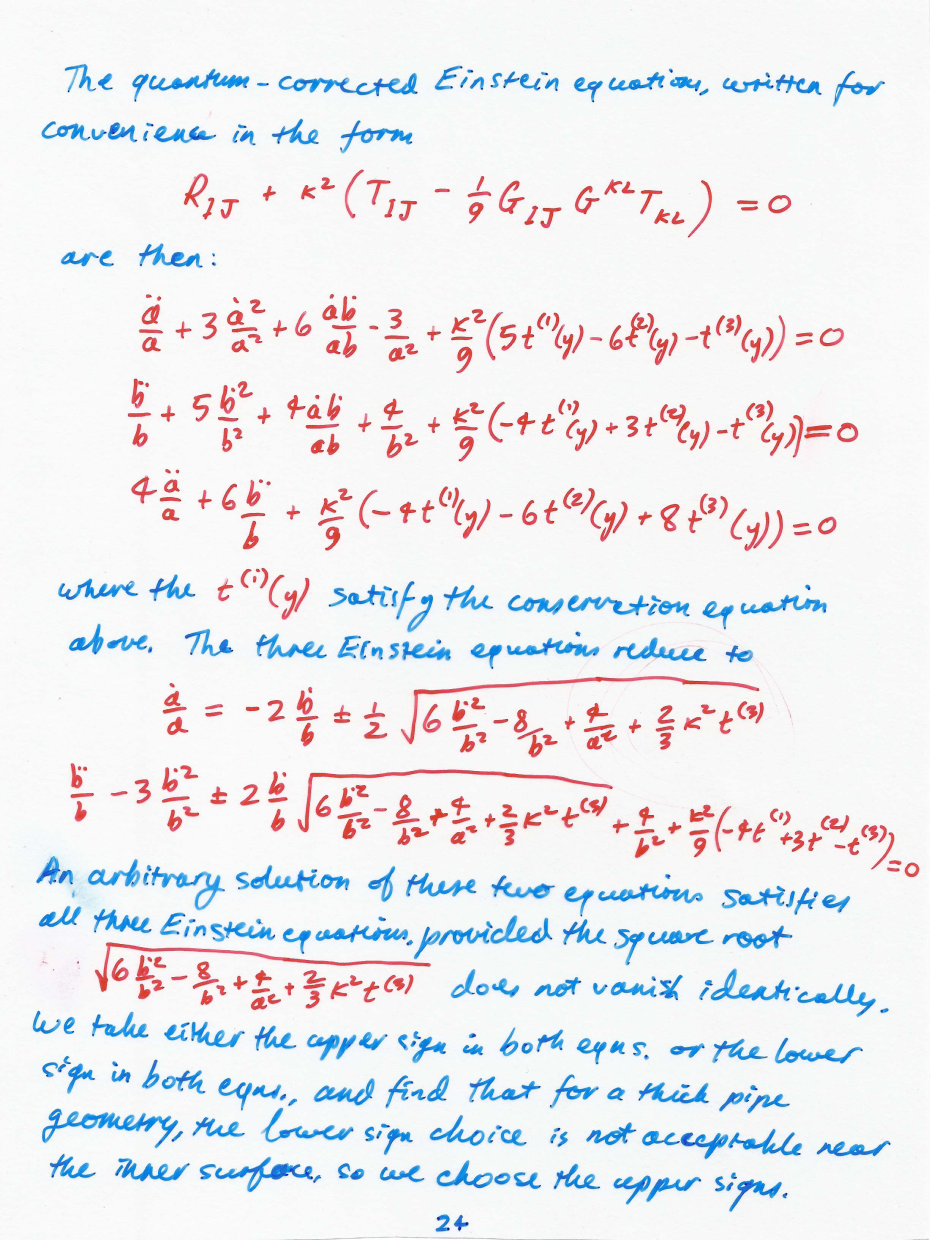 The quantum-corrected Einstein equations, written for
convenience in the form
R_{IJ} + κ² (T_{IJ} - 1/9 G_{IJ} G^{KL} T_{KL}) = 0
are then:
ä/a + 3 ȧ²/a² + 6 ȧḃ/ab - 3/a² + κ²/9 (5t^{(1)}(y) - 6t^{(2)}(y) - t^{(3)}(y)) = 0
b̈/b + 5 ḃ²/b² + 4ȧḃ/ab + 4/b² + κ²/9 (-4t^{(1)}(y) + 3t^{(2)}(y) - t^{(3)}(y)) = 0
4 ä/a + 6 b̈/b + κ²/9 (-4t^{(1)}(y) - 6t^{(2)}(y) + 8t^{(3)}(y)) = 0
where the t^{(i)}(y) satisfy the conservation equation
above. The three Einstein equations reduce to
ȧ/a = -2 ḃ/b ± 1/2 √(6 ḃ²/b² - 8/b² + 4/a² + 2/3 κ² t^{(3)})
b̈/b - 3 ḃ²/b² ± 2 ḃ/b √(6 ḃ²/b² - 8/b² + 4/a² + 2/3 κ² t^{(3)}) + 4/b² + κ²/9 (-4t^{(1)} + 3t^{(2)} - t^{(3)}) = 0
An arbitrary solution of these two equations satisfies
all three Einstein equations, provided the square root
√(6 ḃ²/b² - 8/b² + 4/a² + 2/3 κ² t^{(3)}) does not vanish identically.
We take either the upper sign in both eqns. or the lower
sign in both eqns., and find that for a thick pipe
geometry, the lower sign choice is not acceptable near
the inner surface, so we choose the upper signs.
24